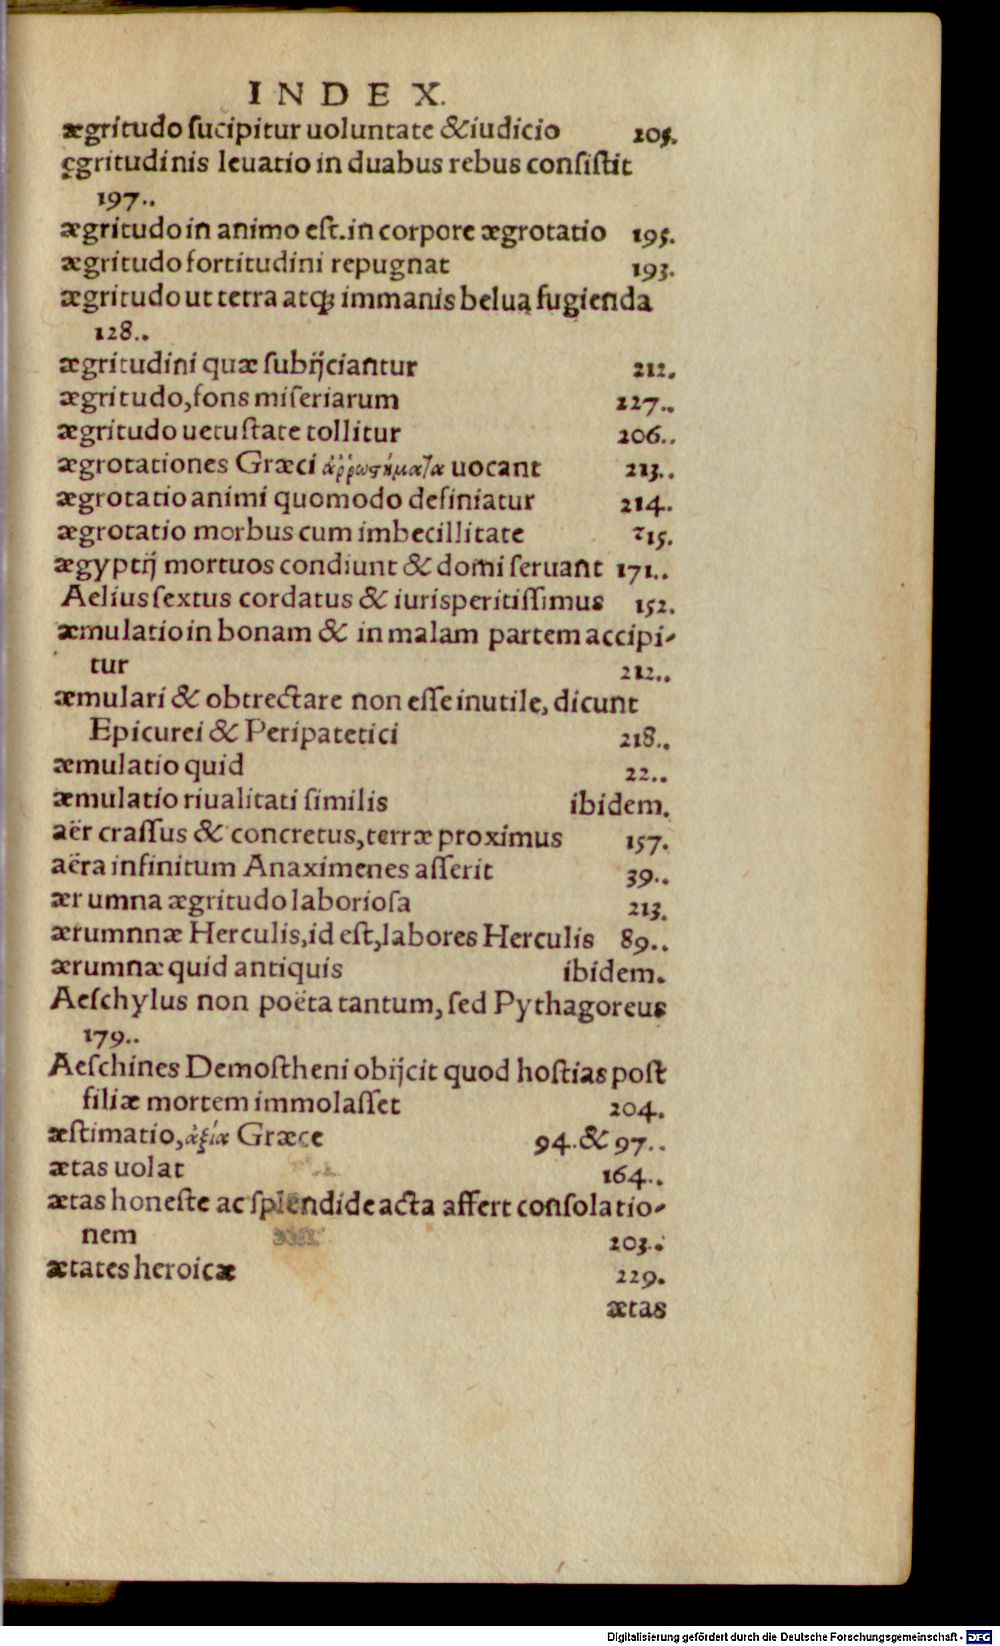 INDEX.
ægritudo sucipitur uoluntate & iudicio 205.
ęgritudinis leuatio in duabus rebus consistit
197..
ægritudo in animo est. in corpore ægrotatio 195.
ægritudo fortitudini repugnat 193.
ægritudo ut tetra atq; immanis belua fugienda
128..
ægritudini quæ subijciantur 212.
ægritudo, fons miseriarum 227..
ægritudo uetustate tollitur 206..
ægrotationes Græci ἀῤῥωστήματα uocant 213..
ægrotatio animi quomodo definiatur 214.
ægrotatio morbus cum imbecillitate 215.
ægyptij mortuos condiunt & domi seruant 171..
Aelius sextus cordatus & iurisperitissimus 152.
æmulatio in bonam & in malam partem accipi-
tur 212..
æmulari & obtrectare non esse inutile, dicunt
Epicurei & Peripatetici 218..
æmulatio quid 22..
æmulatio riualitati similis ibidem.
aër crassus & concretus, terræ proximus 157.
aëra infinitum Anaximenes asserit 39..
ærumna ægritudo laboriosa 213.
ærumnnæ Herculis, id est, labores Herculis 89..
ærumnæ quid antiquis ibidem.
Aeschylus non poëta tantum, sed Pythagoreus
179..
Aeschines Demostheni obijcit quod hostias post
filiæ mortem immolasset 204.
æstimatio, ἀξία Græce 94. & 97..
ætas uolat 164..
ætas honeste ac splendide acta affert consolatio-
nem 203..
ætates heroicæ 229.
ætas
Digitalisierung gefördert durch die Deutsche Forschungsgemeinschaft - DFG